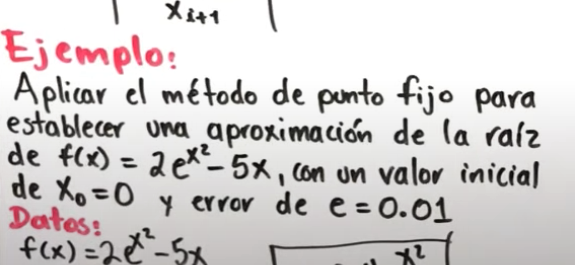 x_{i+1}
Ejemplo:
Aplicar el método de punto fijo para
establecer una aproximación de la raíz
de f(x) = 2e^{x^2} - 5x, con un valor inicial
de x_0 = 0 y error de e = 0.01
Datos:
f(x) = 2e^{x^2} - 5x
x^2